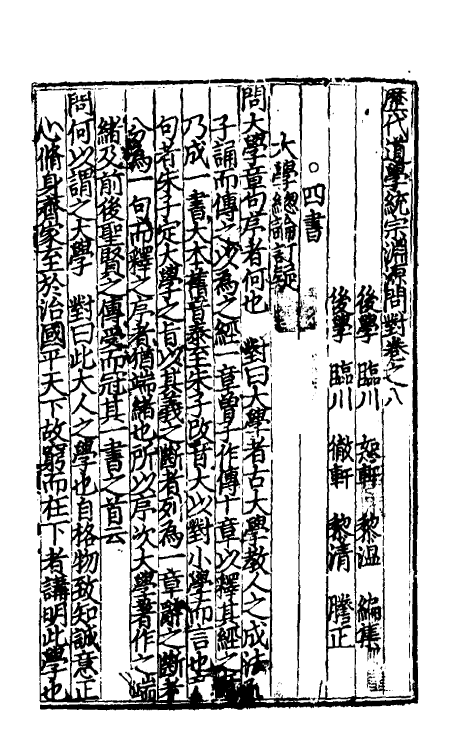 歷代道學統宗淵源問對卷之八
後學 臨川 恕軒 黎溫 編集
後學 臨川 徹軒 黎清 謄正
○四書
大學總論訂疑
問大學章句序者何也 對曰大學者古大學教人之成法
子誦而傳之以為之經一章曾子作傳十章以釋其經之
乃成一書大本舊音泰至朱子改音大以對小學而言也
句者朱子定大學之旨以其義之斷者列為一章辭之斷者
分為一句而釋之序者猶端緒也所以序次大學著作之端
緒及前後聖賢之傳受而冠其一書之首云
問何以謂之大學 對曰此大人之學也自格物致知誠意正
心脩身齊家至於治國平天下故窮而在下者講明此學也